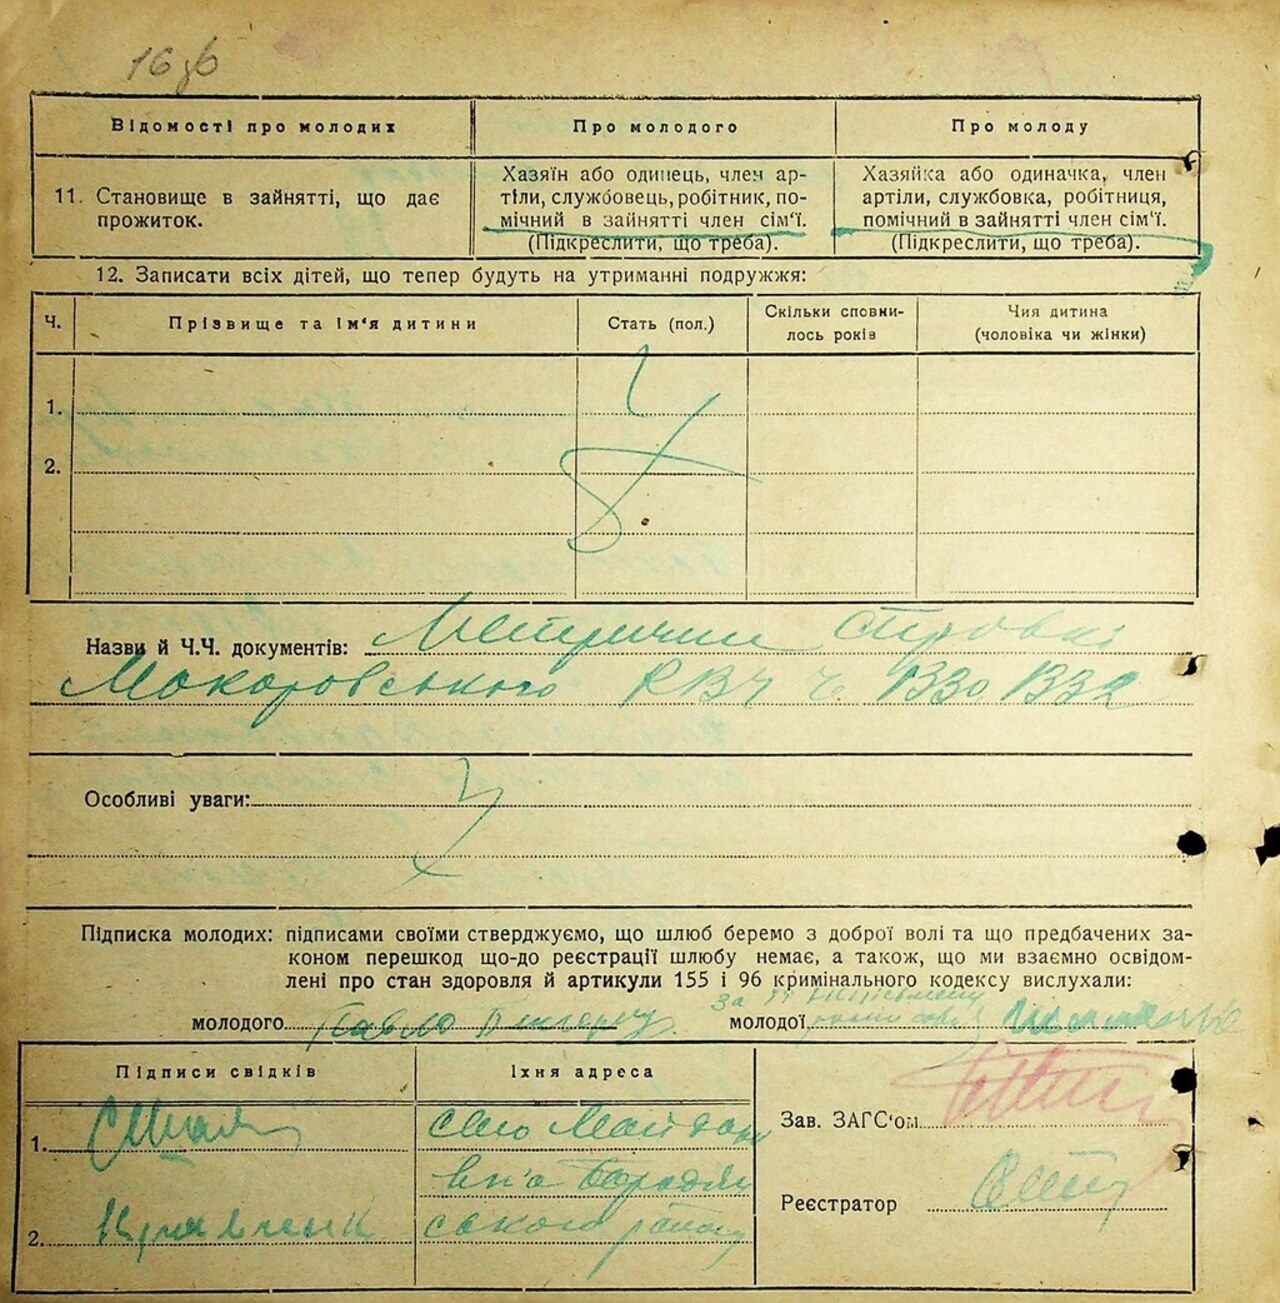 16 зв
Відомості про молодих
Про молодого
Про молоду
11. Становище в зайнятті, що дає
прожиток.
Хазяїн або одинець, член ар-
тіли, службовець, робітник, по-
мічний в зайнятті член сім'ї.
(Підкреслити, що треба).
Хазяйка або одиначка, член
артіли, службовка, робітниця,
помічний в зайнятті член сім'ї.
(Підкреслити, що треба).
12. Записати всіх дітей, що тепер будуть на утриманні подружжя:
Ч.
Прізвище та ім'я дитини
Стать (пол.)
Скільки сповни-
лось років
Чия дитина
(чоловіка чи жінки)
1.
2.
Назви й Ч.Ч. документів: Метричні
Макоровського Ч. 1330, 1332
Особливі уваги:
Підписка молодих: підписами своїми стверджуємо, що шлюб беремо з доброї волі та що предбачених за-
коном перешкод що-до реєстрації шлюбу немає, а також, що ми взаємно освідом-
лені про стан здоровля й артикули 155 і 96 кримінального кодексу вислухали:
молодого Павло
молодої за її
Підписи свідків
Їхня адреса
1.
село Майдан
Бородян
2. Кравченк
ського району
Зав. ЗАГС'ом
Реєстратор